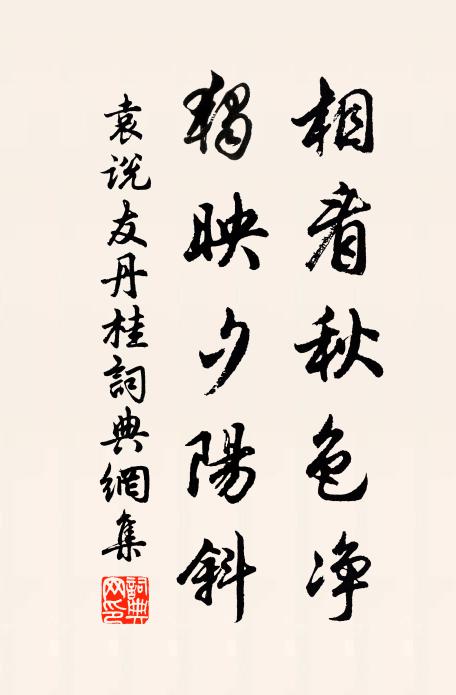 相看秋色净
獨映夕陽斜
袁说友丹桂詞典網集
詞典網印